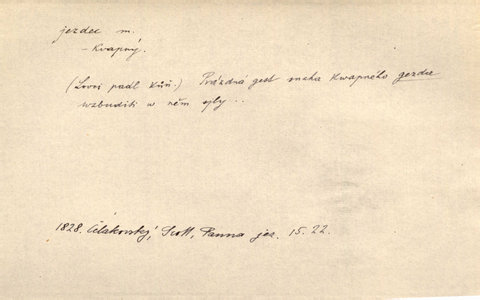 jezdec m.
- Kvapný.
(Lovci padl kůň.) Prázdná gest snaha Kwapného gezdce
wzbuditi w něm syly..
1828. Čelakovský, Scott, Panna jez. 15.22.